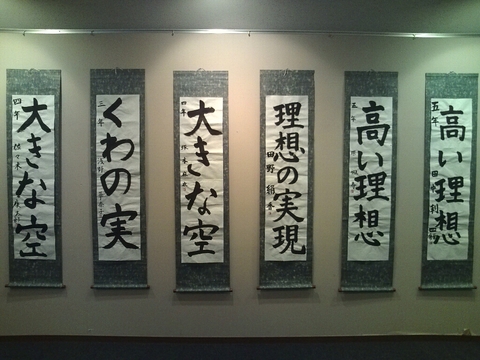 高い理想
五年
高い理想
五年
理想の実現
大きな空
四年
くわの実
三年
大きな空
四年